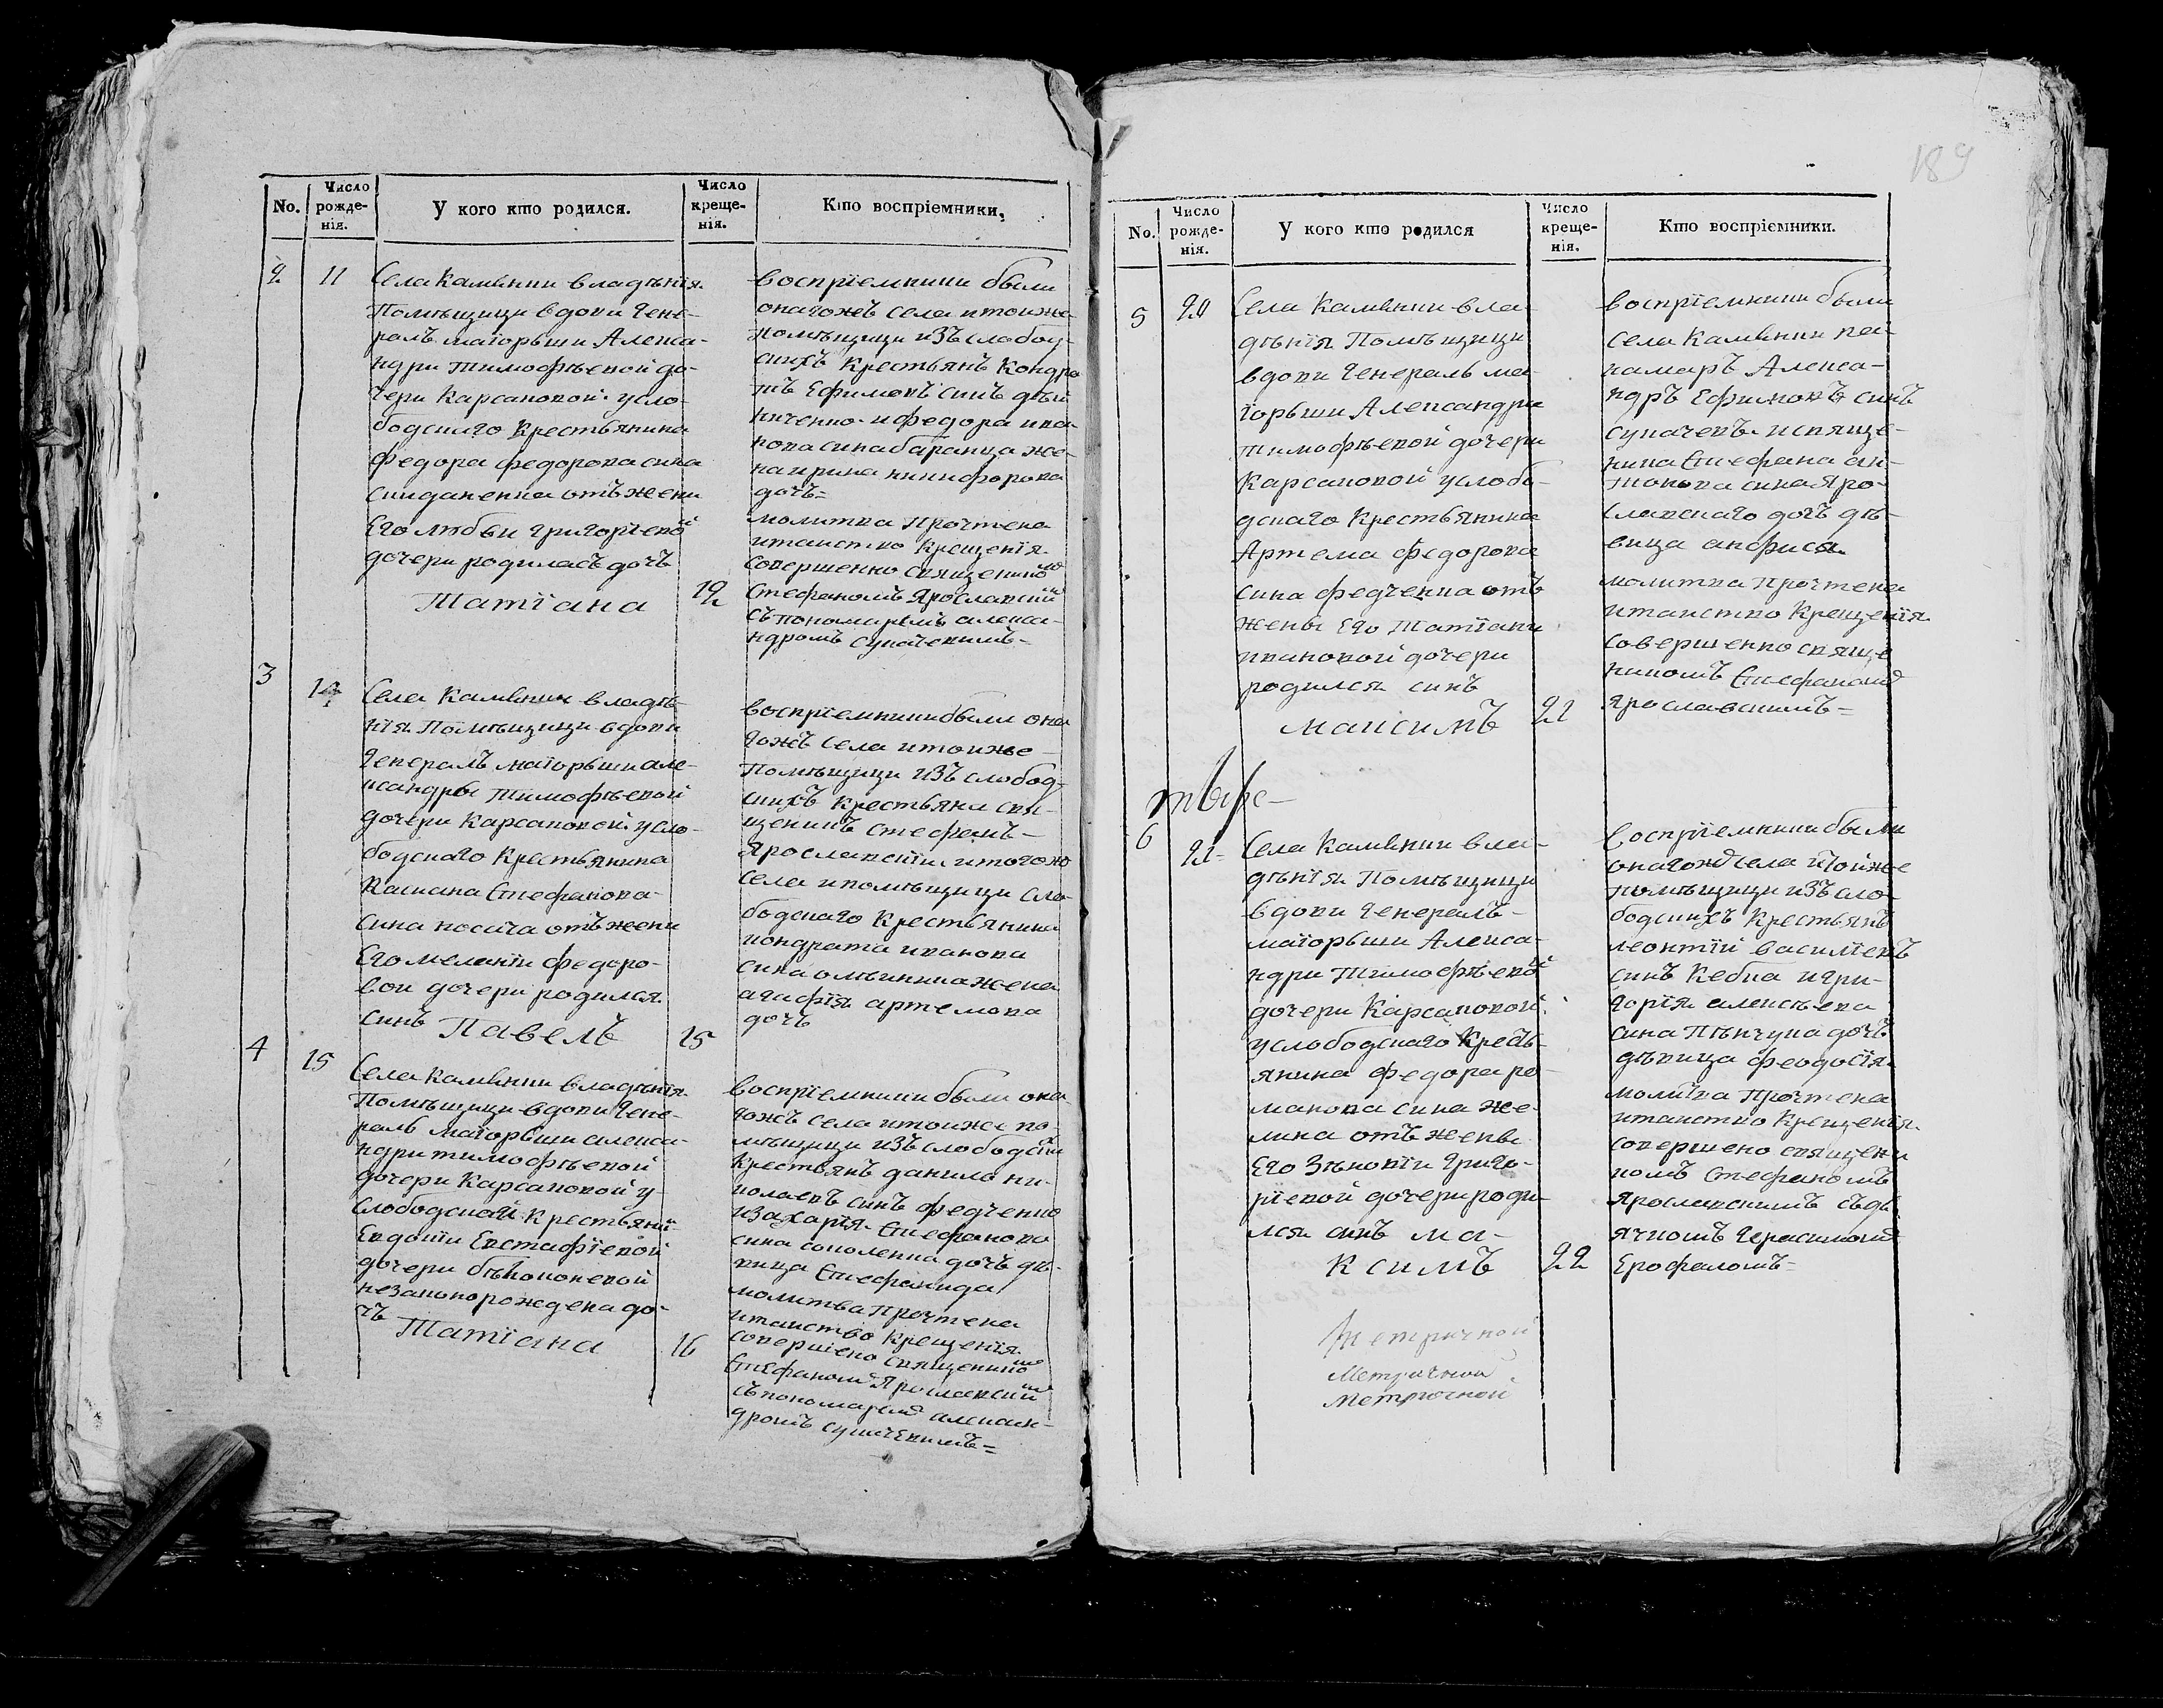 No.
Число рожде- нія.
У кого кто родился.
Число креще- нія.
Кто воспріемники.
2
11
Села Каменки владѣнія
Помѣщици вдови Гене-
ралъ маіорьши Алекса-
ндри Тимофѣевой до-
чери Карсаковой усло-
бодскаго Крестьянина
Федора федорова сина
отъ жени
Его любви григоріевой
дочери родиласъ дочъ
Татіана
12
воспріемники били
онагожъ села итоиже
помѣщици изъ слобоц-
кихъ Крестьянъ Кондра
тъ Ефимовъ синъ
иФедора ива-
нова сина баранца же-
на ирина никифорова
дочь=
молитва Прочтена
итаинство Крещенія
Совершенно Священико мъ
Стефаномъ Ярославским
съ пономаремъ алекса-
ндромъ
3
14
Села Каменки владѣ-
нія Помѣщици вдови
Генералъ маіорьши але-
ксандры Тимофѣевой
дочери Карсаковой усло-
бодскаго Крестьянина
Касиана Стефанова
сина носача отъ жени
Его меланіи федоро-
вои дочери родился
синъ Павелъ
15
воспріемники били она
гожъ села итоиже
Помѣщици изъ слобод-
скихъ Крестьяна свя-
щеникъ стефанъ
Ярославскіи итогожъ
села ипомѣщици сло-
бодскаго Крестьянина
кондрата иванова
сина жена
агафія артемова
дочъ
4
15
Села Каменки владѣнія
Помѣщици вдови Гене-
ралъ маіорьши алекса-
ндри тимофѣевой
дочери Карсаковой у-
слободскои Крестьянки
Евдокіи Евстафіевой
дочери
незаконорождена до-
чъ Татіана
16
воспріемники били она
гожъ села итоиже по-
мѣщици изъ слободски
Крестьянъ данило ни-
колаевъ синъ федченко
изахарія Стефанова
сина соколенка дочъ дѣ-
вица Стефанида
молитва Прочтена
итаинство Крещенія
совершено священико мъ
Стефаномъ Ярославским
съ пономаремъ алексан-
дромъ
189
No.
Число рожде- нія.
У кого кто родился
Число креще- нія.
Кто воспріемники.
5
20
Села Каменки вла-
дѣнія Помѣщици
вдови Генералъ ма-
іорьши Александри
тимофѣевой дочери
Карсаковой услобо-
дскаго Крестьянина
Артема Федорова
сина федченка отъ
жены Его Татіани
ивановой дочери
родился синъ
максимъ
21
воспріемники были
села Каменки по-
намаръ Алекса-
ндръ Ефимовъ синъ
исвяще-
ника Стефана ан-
тонова сина Яро-
славскаго дочъ дѣ-
вица анфиса
молитва Прочтена
итаинство Крещенія
совершенно свяще
никомъ Стефаномъ
Ярославскимъ=
6
21
Села Каменки вла-
дѣнія Помѣщици
вдови Генералъ-
маіорьши Алекса-
ндри Тимофѣевой
дочери Карсаковой
услободскаго Кресть-
янина Федора ро-
манова сина же-
лика отъ жены
Его Зѣновіи Григо-
ріевой дочери роди-
лся синъ ма-
ксимъ
22
Воспріемники были
онагожъ села итойже
помѣщици изъ сло-
бодскихъ Крестьянъ
леонтій василіевъ
синъ Кебка игри-
горія алексѣева
сина дочъ
дѣвица феодосія
молитва Прочтена
итаинство Крещенія
совершено священи
комъ Стефаномъ
Ярославскимъ съдь
ячкомъ Герасимомъ
Ерофаломъ=
Метричной
Метричной
Метричной